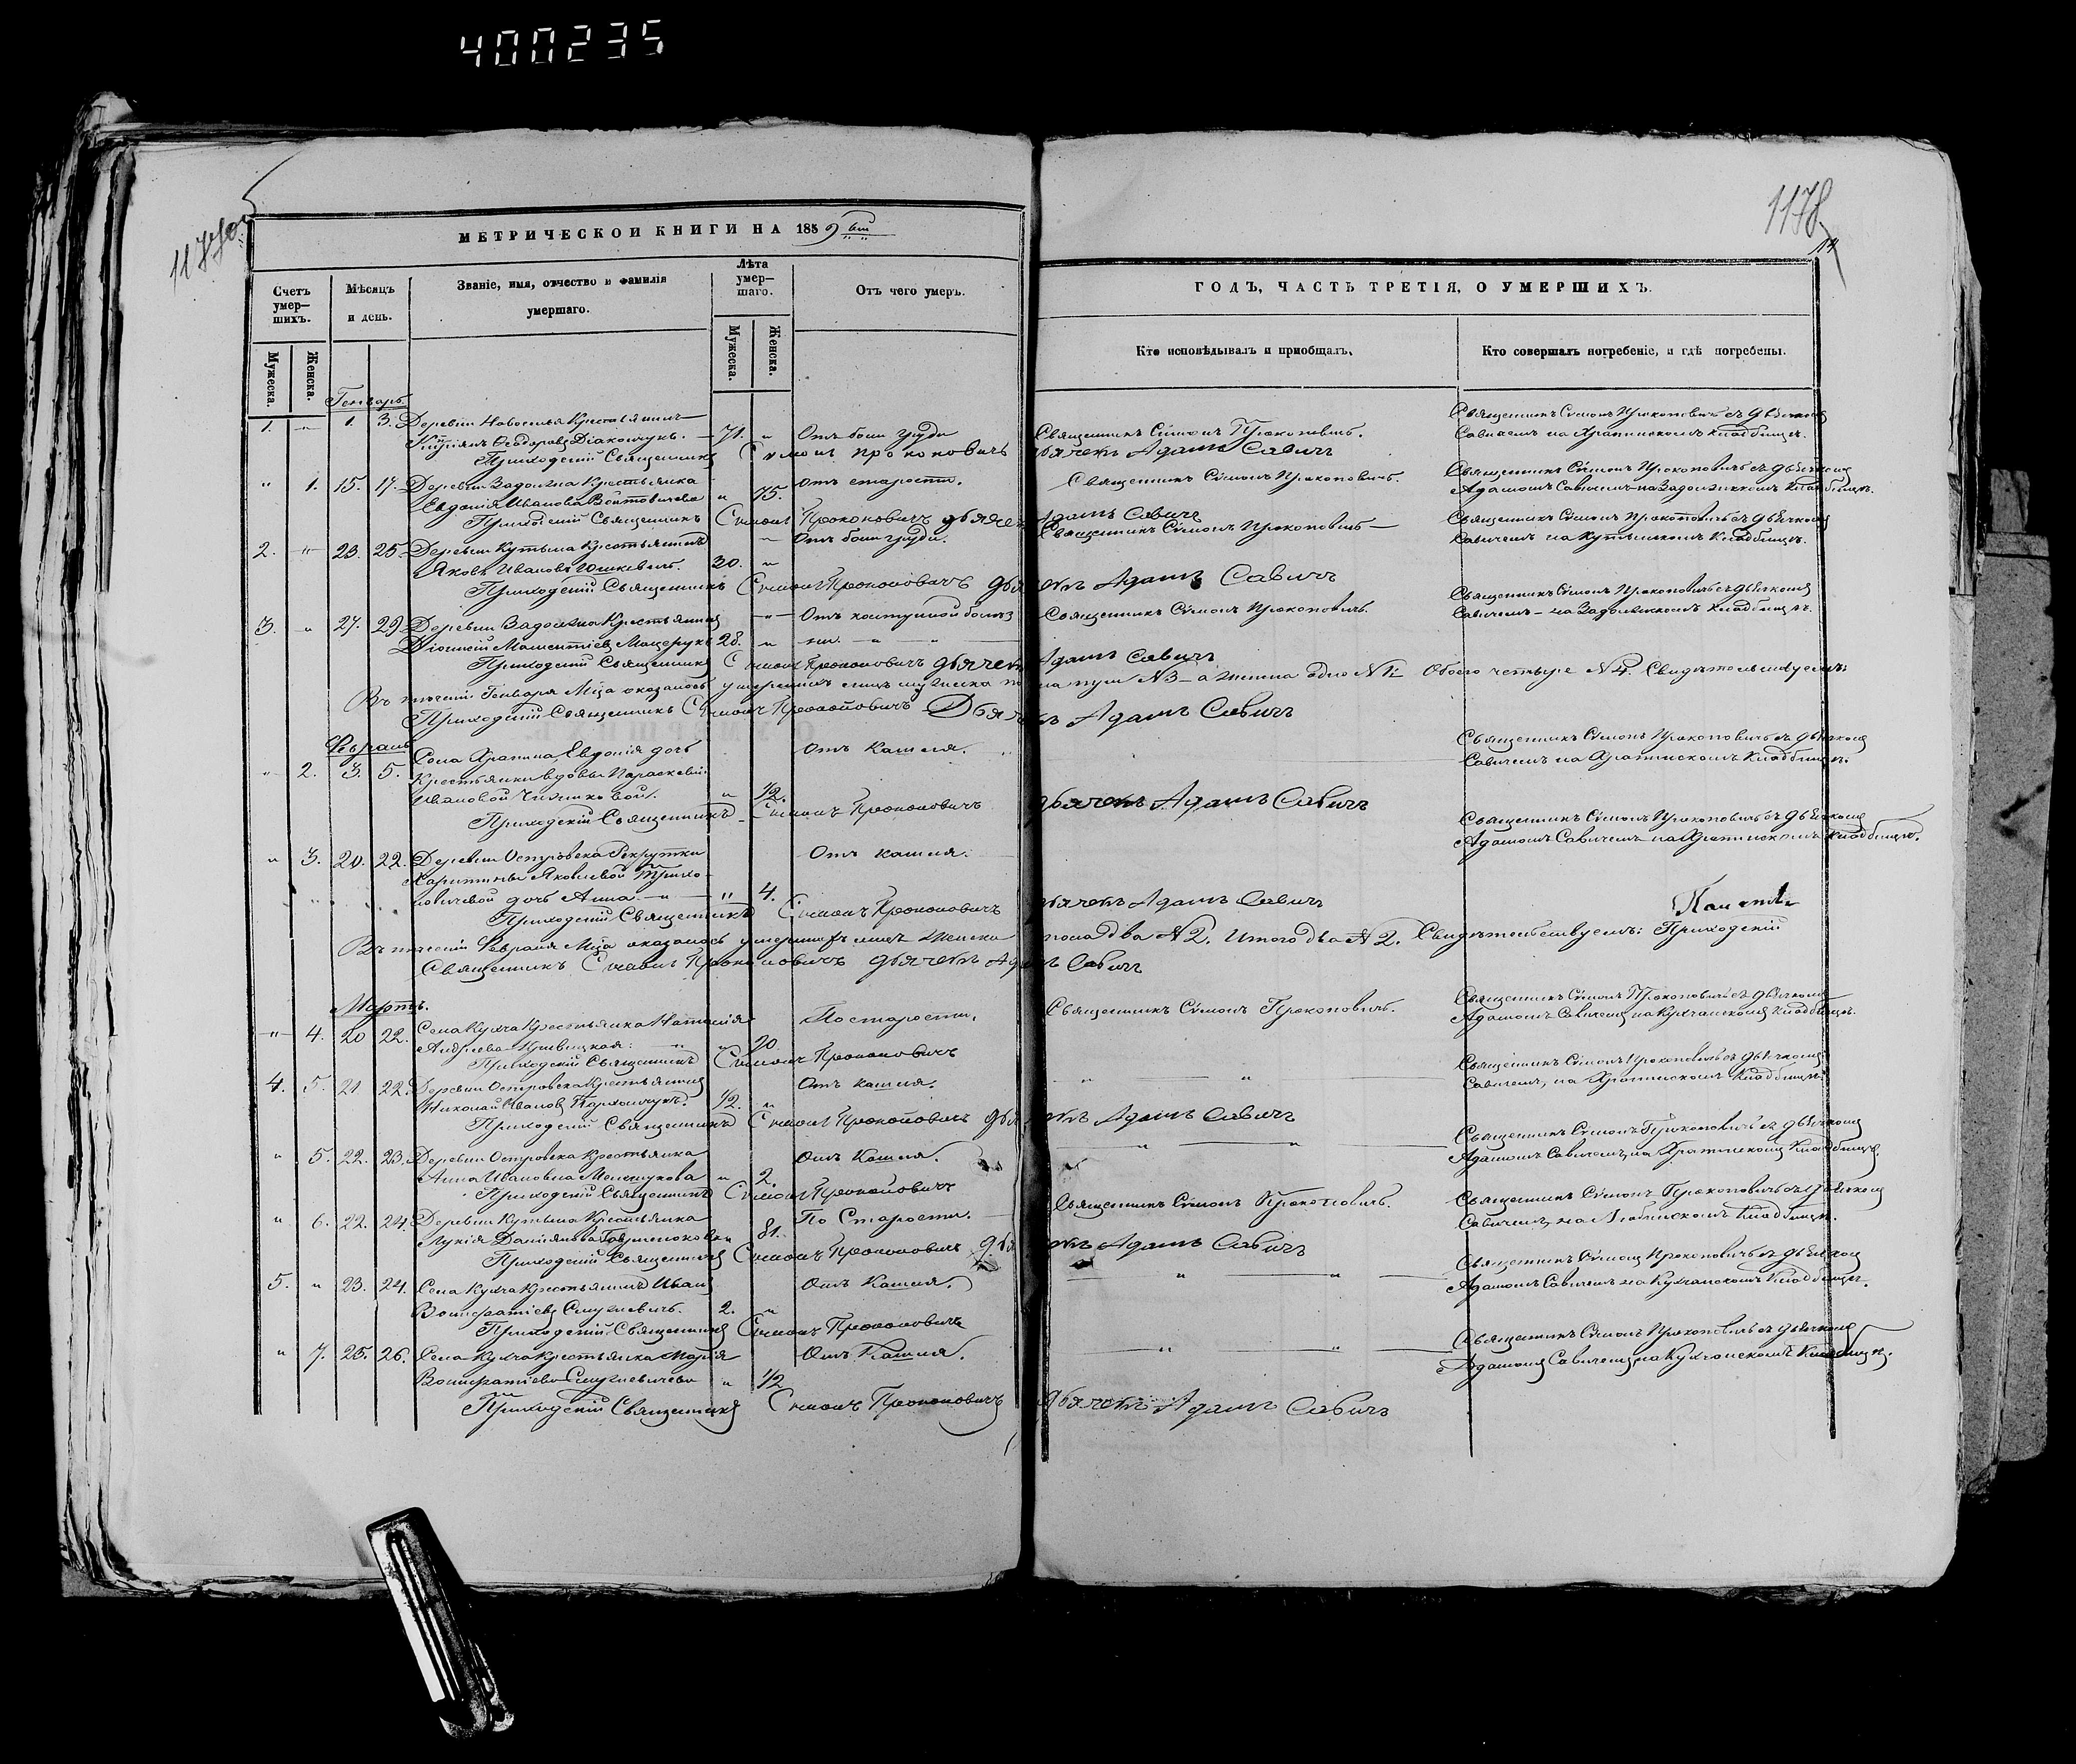 400235
1177об
1178
МЕТРИЧЕСКОЙ КНИГИ НА 1859
ГОДЪ, ЧАСТЬ ТРЕТІЯ, О УМЕРШИХЪ.
Счетъ умер—шихъ.
Мѣсяцъ и день.
Званіе, имя, отчество и фамилія умершаго.
Лѣта умер—шаго.
Отъ чего умеръ.
Кто исповѣдывалъ и пріобщалъ.
Кто совершалъ погребеніе, и гдѣ погребены.
Мужеска.
Женска.
Мужеска.
Женска.
Генварь
1. „ 1. 3. Деревни Крестьянинъ Отъ боли груди Священникъ Симонъ Прокоповичъ. Священникъ Симонъ Прокоповичъ съ дьячкомъ
Кипріянъ Ѳеодоровъ Діакончукъ. 71. „ Савичемъ на Храпинскомъ кладбищѣ.
Приходскій Священникъ Симонъ Прокоповичъ дьячекъ Адамъ Савичъ
„ 1. 15. 17. Деревни Задолжа Крестьянка Отъ старости. Священникъ Симонъ Прокоповичъ. Священникъ Симонъ Прокоповичъ съ дьячкомъ
Евдокія Иванова Войтовичева „ 75. Адамомъ Савичемъ на кладбищѣ.
Приходскій Священникъ Симонъ Прокоповичъ дьячекъ Адамъ Савичъ
2. „ 23. 25. Деревни Кутына Крестьянинъ „ Отъ боли груди. Священникъ Симонъ Прокоповичъ — Священникъ Симонъ Прокоповичъ съ дьячкомъ
Яковъ Ивановъ Юшкевичъ. 30. „ Савичемъ на Кутынскомъ кладбищѣ.
Приходскій Священникъ Симонъ Прокоповичъ дьячекъ Адамъ Савичъ
3. „ 27. 29. Деревни Задолжа Крестьянинъ „ Отъ болѣз Священникъ Симонъ Прокоповичъ. Священникъ Симонъ Прокоповичъ съ дьячкомъ
Діонисій Мацерукъ 28. „ ни. Савичемъ — на кладбищѣ.
Приходскій Священникъ Симонъ Прокоповичъ дьячекъ Адамъ Савичъ
Въ теченіи Генваря Мца оказалось умершихъ лицъ мужеска пола три №3 — а женска одно №1. Обоего четыре №4. Свидѣтельствуемъ:
Приходскій Священникъ Симонъ Прокоповичъ Дьячекъ Адамъ Савичъ
Февраль
„ 2. 3. 5. Села Храпина, Евдокія дочь Отъ Кашля. Священникъ Симонъ Прокоповичъ съ дьячкомъ
Крестьянки вдовы Параскевіи Савичемъ на Храпинскомъ Кладбищѣ.
Ивановой „ 1/2.
Приходскій Священникъ Симонъ Прокоповичъ дьячекъ Адамъ Савичъ
„ 3. 20. 22. Деревни Островска Рекрутки Отъ кашля. Священникъ Симонъ Прокоповичъ съ дьячкомъ
Харитины Яковлевой Трихо- Адамомъ Савичемъ на Храпинскомъ Кладбищѣ.
новичевой дочь Анна. „ 4.
Приходскій Священникъ Симонъ Прокоповичъ дьячекъ Адамъ Савичъ
Въ теченіи Февраля Мца оказалось умершихъ лицъ Женска пола два №2. Итого два №2. Свидѣтельствуемъ: Приходскій
Священникъ Симонъ Прокоповичъ дьячекъ Адамъ Савичъ
Мартъ.
„ 4. 20 22. Села Кухча Крестьянка Наталія По старости. Священникъ Симонъ Прокоповичъ. Священникъ Симонъ Прокоповичъ съ дьячкомъ
Андреева Кривицкая: „ 90 Адамомъ Савичемъ на Кухчанскомъ Кладбищѣ.
Приходскій Священникъ Симонъ Прокоповичъ
4. 5. 21 22. Деревни Островска Крестьянинъ Отъ кашля. „ „ Священникъ Симонъ Прокоповичъ съ дьячкомъ
Николай Ивановъ Пархомчукъ. 1/2. „ Савичемъ, на Храпинскомъ Кладбищѣ.
Приходскій Священникъ Симонъ Прокоповичъ дьячекъ Адамъ Савичъ
„ 5. 22. 23. Деревни Островска Крестьянка Отъ Кашля. „ „ Священникъ Симонъ Прокоповичъ съ дьячкомъ
Анна Ивановна „ 2. Адамомъ Савичемъ, на Храпинскомъ Кладбищѣ.
Приходскій Священникъ Симонъ Прокоповичъ
„ 6. 22. 24. Деревни Кутына Крестьянка По Старости. Священникъ Симонъ Прокоповичъ. Священникъ Симонъ Прокоповичъ съ дьячкомъ
Лукія Даміянова „ 81. Савичемъ, на Кладбищѣ.
Приходскій Священникъ Симонъ Прокоповичъ дьячекъ Адамъ Савичъ
5. „ 23. 24. Села Кухча Крестьянинъ Иванъ Отъ Кашля. „ „ Священникъ Симонъ Прокоповичъ съ дьячкомъ
Вонифатіевъ Смулевичъ. 2. „ Адамомъ Савичемъ на Кухчанскомъ Кладбищѣ.
Приходскій Священникъ Симонъ Прокоповичъ
„ 7. 25. 26. Села Кухча Крестьянка Марія Отъ Кашля. „ „ Священникъ Симонъ Прокоповичъ съ дьячкомъ
Вонифатіева Смулевичева „ 1/2 Адамомъ Савичемъ на Кухчанскомъ Кладбищѣ.
Приходскій Священникъ Симонъ Прокоповичъ дьячекъ Адамъ Савичъ